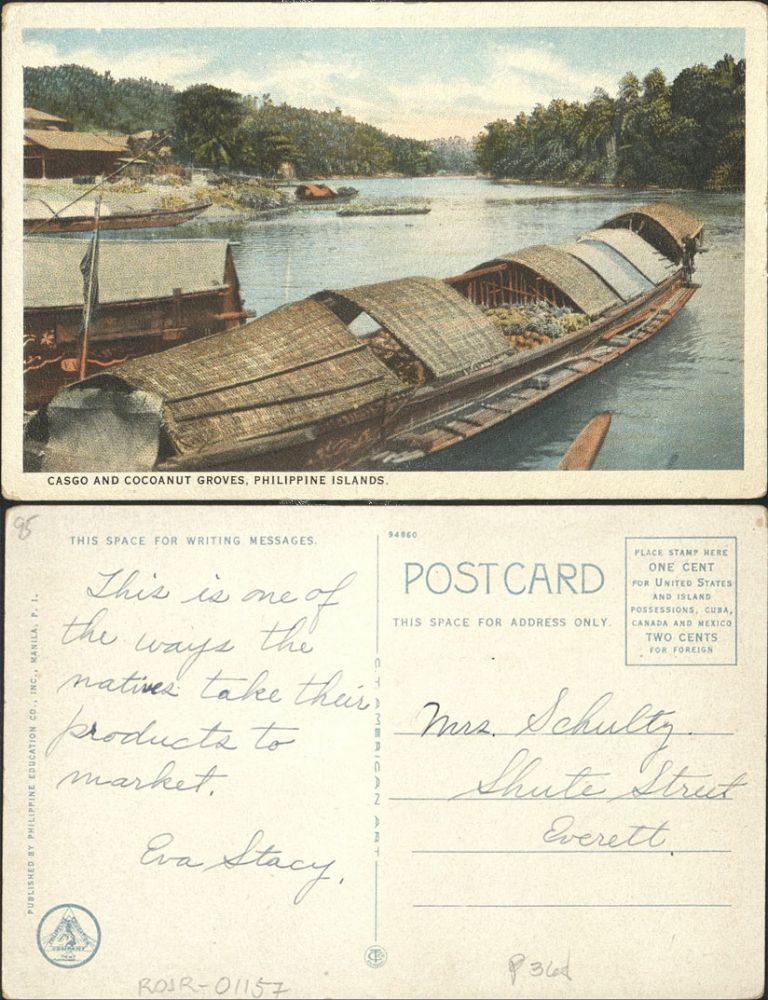 CASGO AND COCOANUT GROVES, PHILIPPINE ISLANDS.
95
THIS SPACE FOR WRITING MESSAGES.
This is one of
the ways the
natives take their
products to
market.
Eva Stacy.
PUBLISHED BY PHILIPPINE EDUCATION CO., INC., MANILA, P. I.
ROSR-01157
C T AMERICAN ART
94860
POSTCARD
THIS SPACE FOR ADDRESS ONLY.
PLACE STAMP HERE
ONE CENT
FOR UNITED STATES
AND ISLAND
POSSESSIONS, CUBA,
CANADA AND MEXICO
TWO CENTS
FOR FOREIGN
Mrs. Schultz.
Shute Street
Everett.